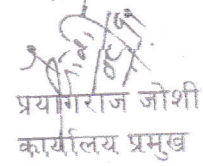 प्रयागराज जोशी
कार्यालय प्रमुख